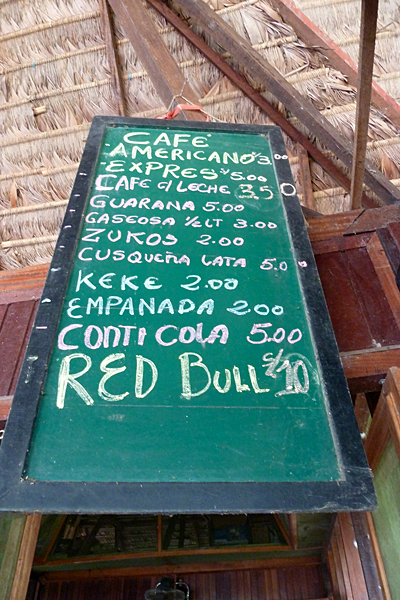 CAFE
AMERICANO S/ 3.00
EXPRES S/ 5.00
CAFE C/ LECHE 3.50
GUARANA 5.00
GASEOSA 1/2 LT 3.00
ZUKOS 2.00
CUSQUEÑA LATA 5.00
KEKE 2.00
EMPANADA 2.00
CONTI COLA 5.00
RED BULL S/. 10